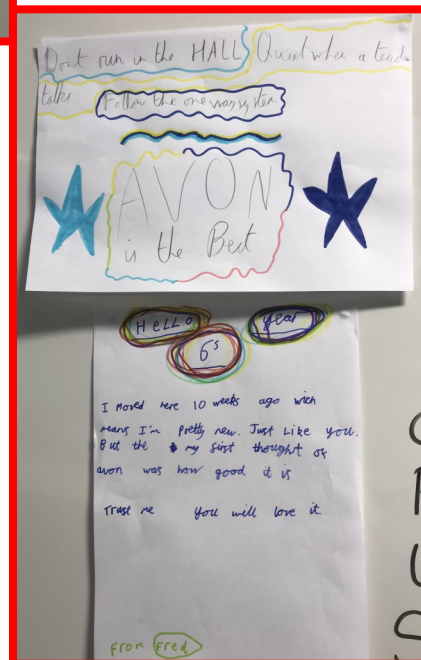 Dont run in the HALL Quiet when a teacher
talks Follow the one way system
AVON
is the Best
HeLLO year
6s
I moved here 10 weeks ago wich
means I'm pretty new. Just Like you.
But the my first thought of
avon was how good it is
Trust me you will love it
From Fred